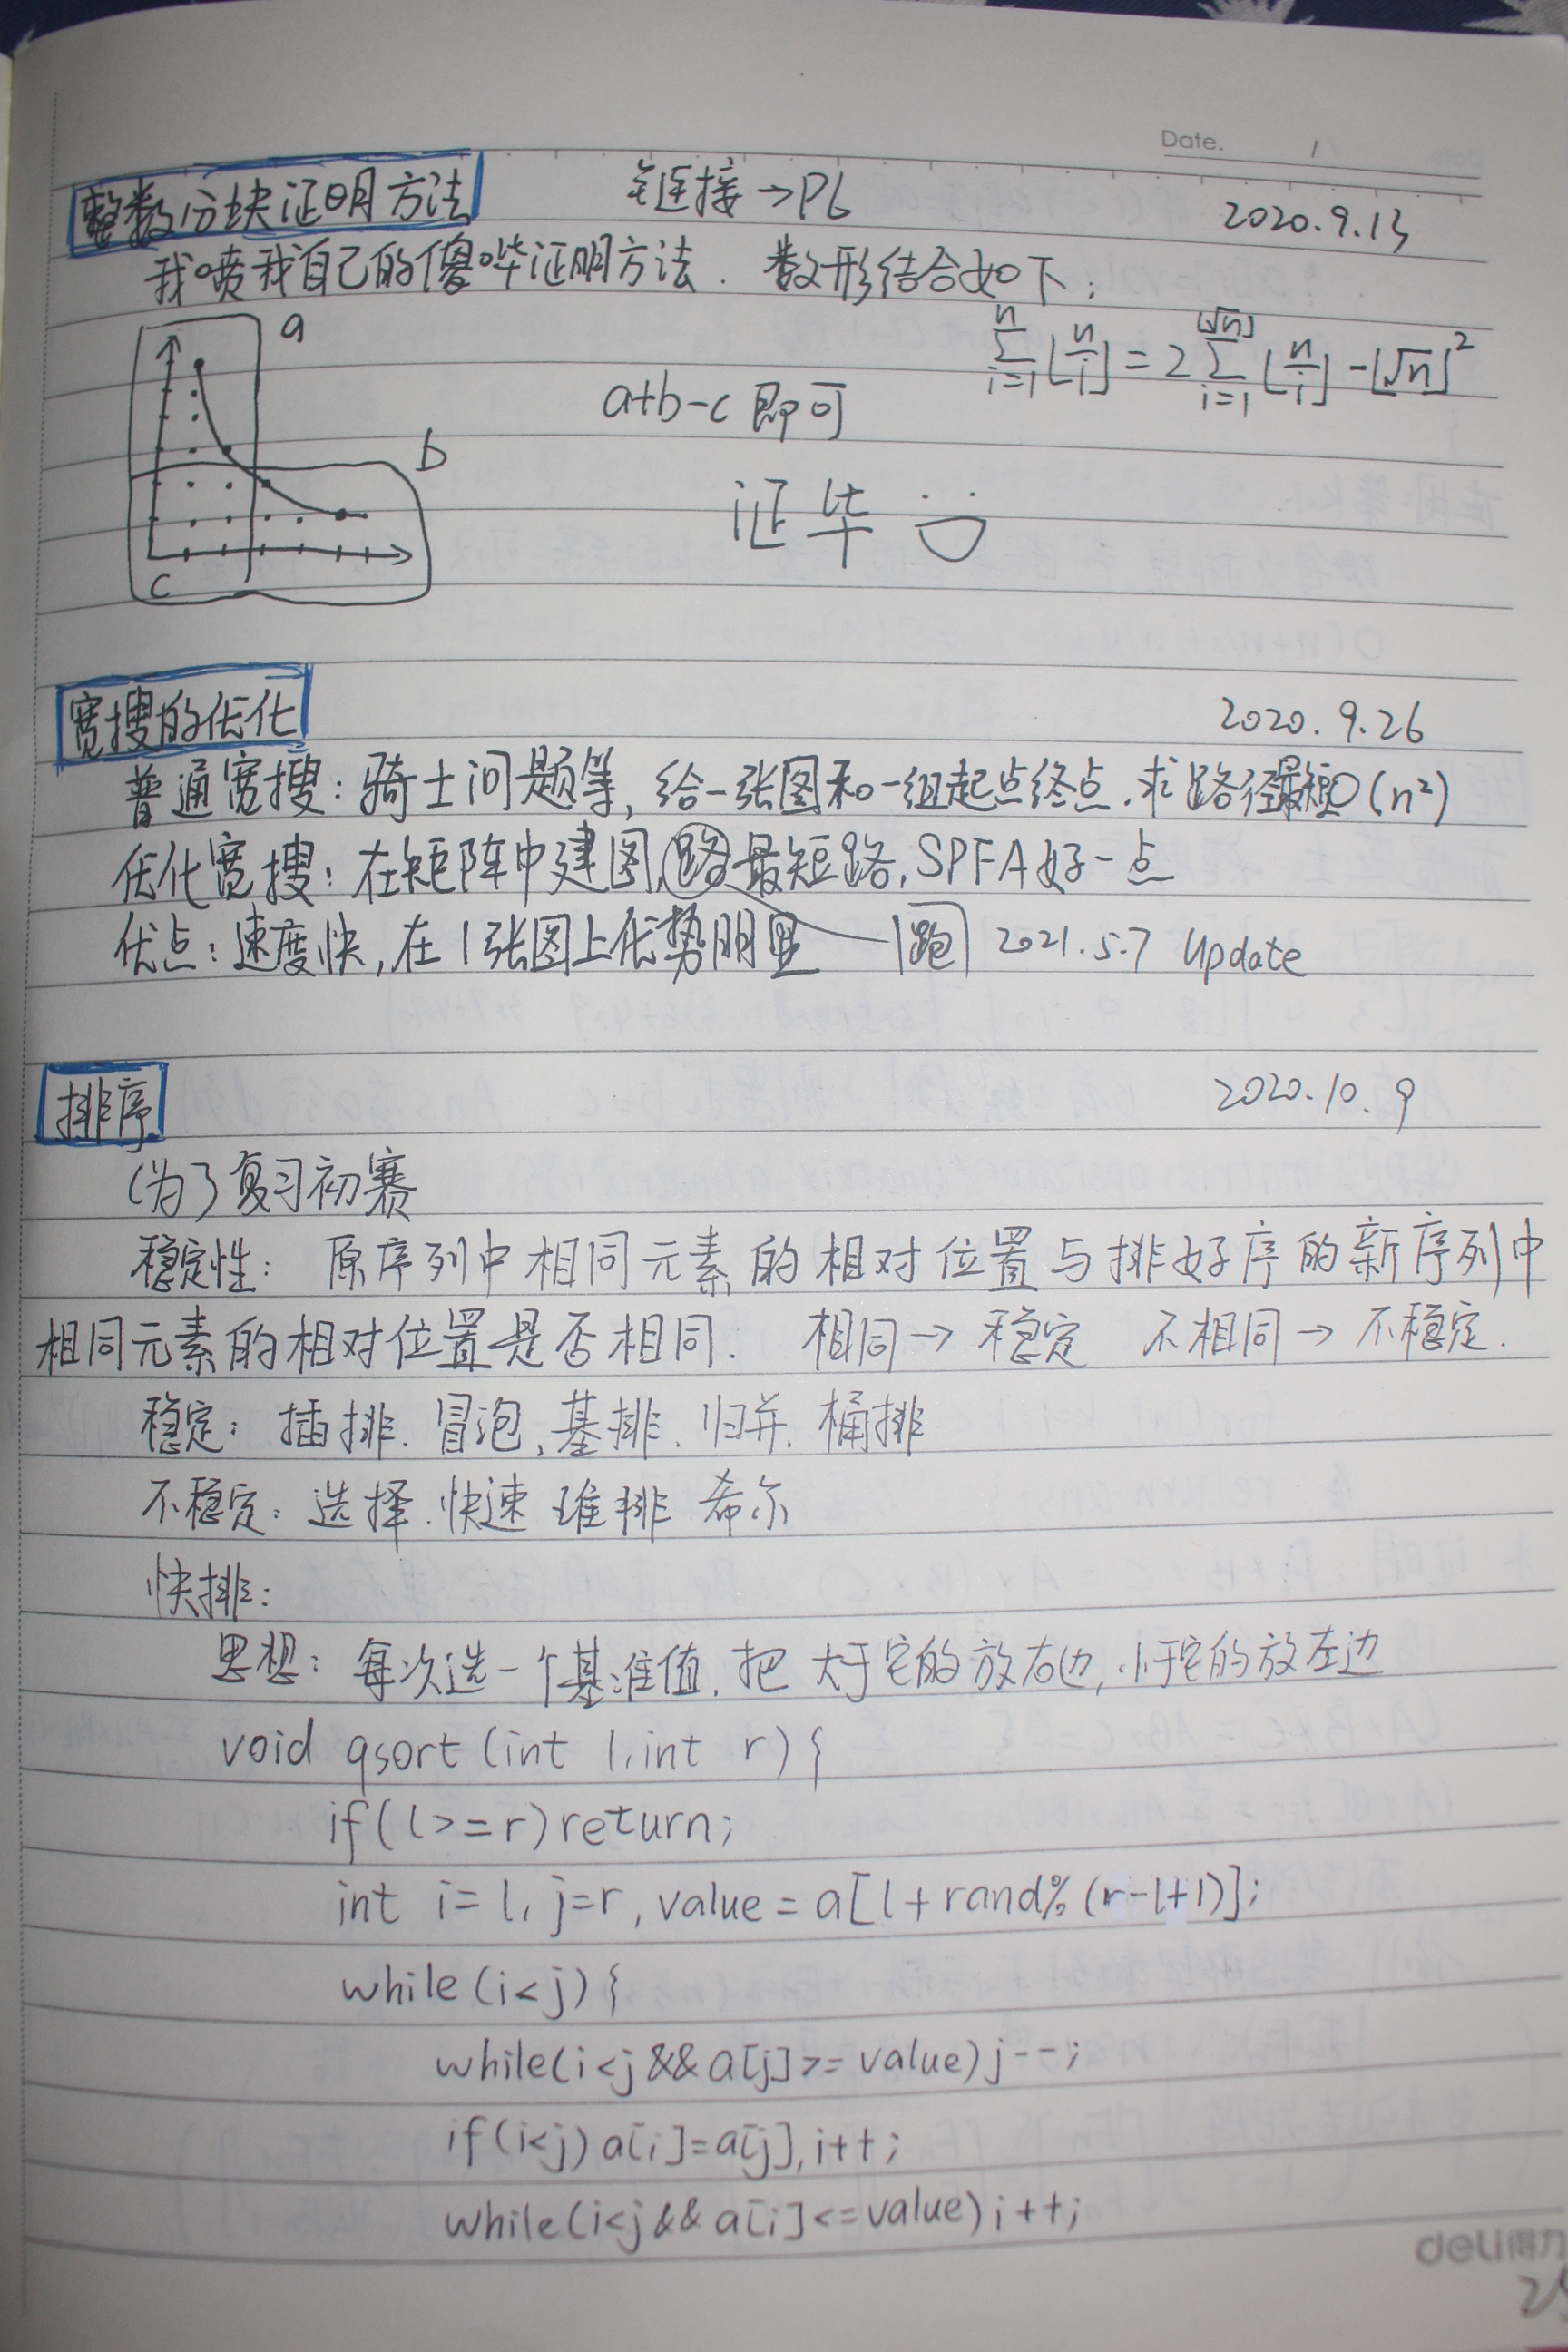 Date. /
整数分块证明方法 链接→P6 2020.9.13
我喷我自己的傻哔证明方法. 数形结合如下:
a
a+b-c 即可 \sum_{i=1}^{n}⌊n/i⌋=2\sum_{i=1}^{⌊√n⌋}⌊n/i⌋-⌊√n⌋²
b
证毕
c
宽搜的优化 2020.9.26
普通宽搜:骑士问题等,给一张图和一组起点终点.求路径最短O(n²)
优化宽搜:在矩阵中建图,路最短路,SPFA好一点
优点:速度快,在1张图上优势明显 跑 2021.5.7 update
排序 2020.10.9
(为了复习初赛
稳定性: 原序列中相同元素的相对位置与排好序的新序列中
相同元素的相对位置是否相同. 相同→稳定 不相同→不稳定.
稳定:插排.冒泡、基排.归并.桶排
不稳定:选择.快速 堆排 希尔
快排:
思想:每次选一个基准值.把大于它的放右边,小于它的放左边
void qsort(int l,int r){
if(l>=r)return;
int i=l,j=r,value=a[l+rand%(r-l+1)];
while(i<j){
while(i<j&&a[j]>=value)j--;
if(i<j)a[i]=a[j],i++;
while(i<j&&a[i]<=value)i++;
deli得力